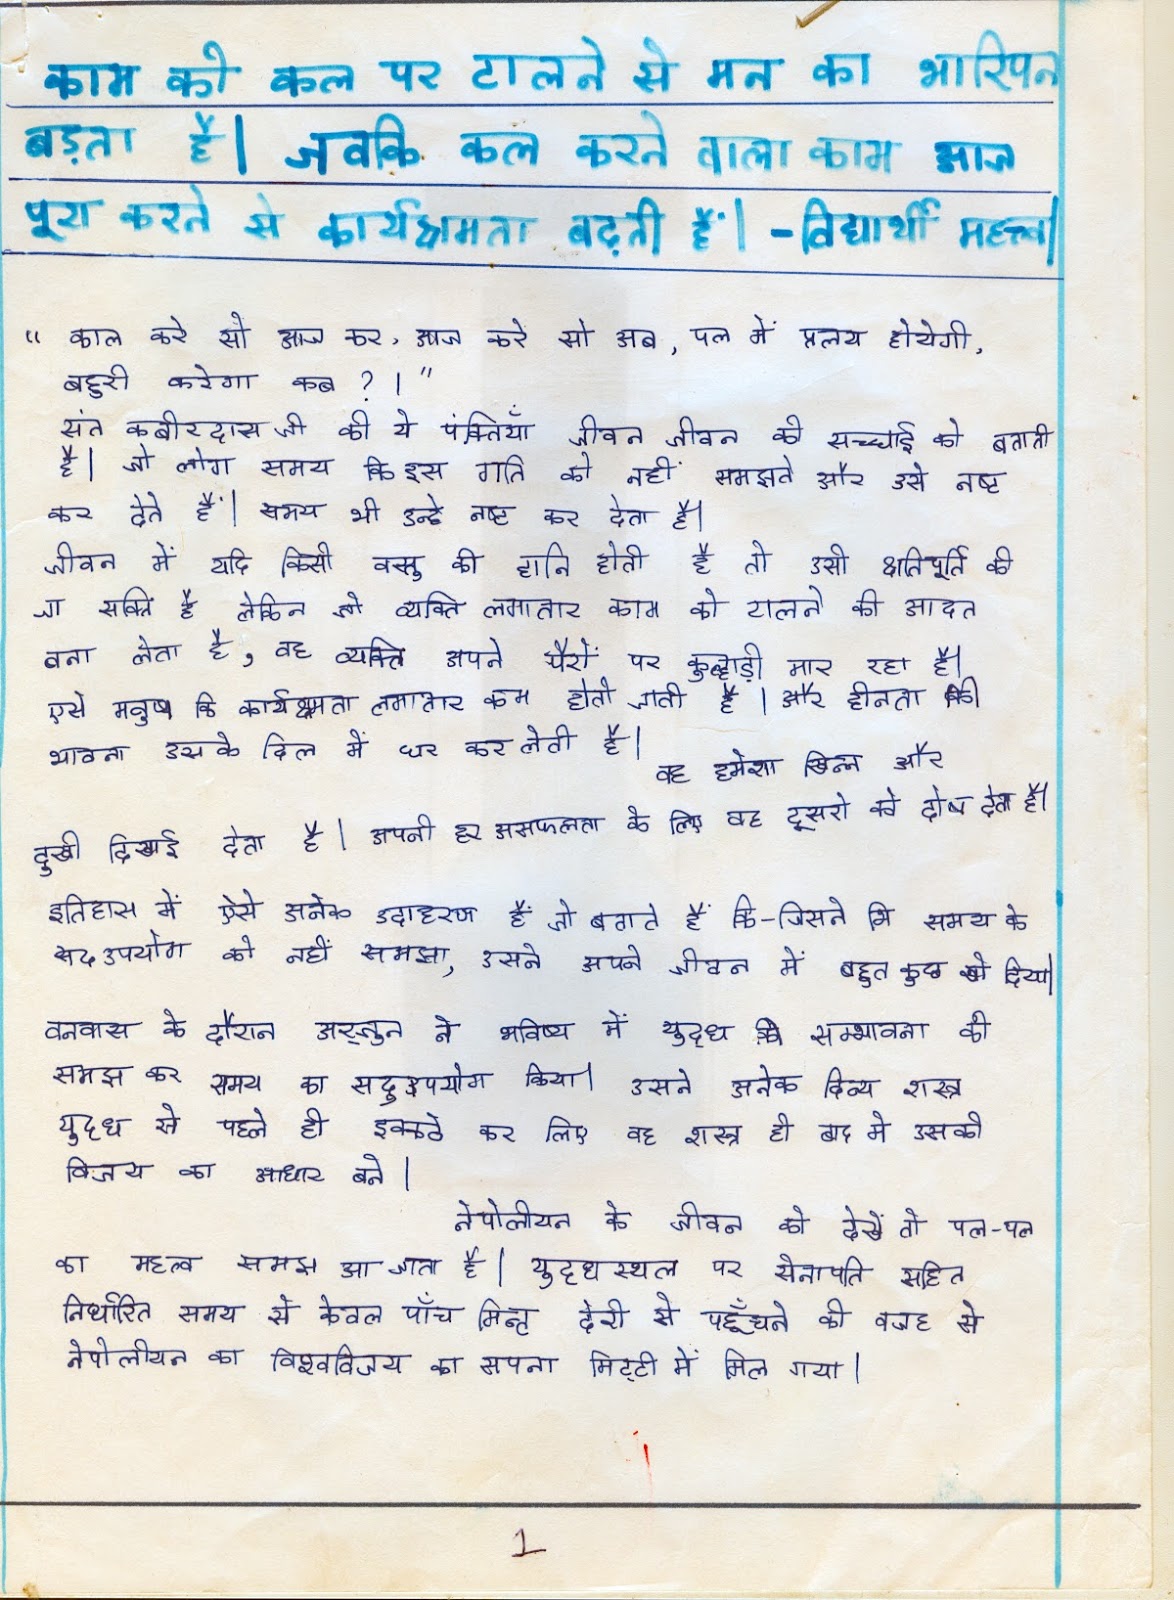 काम को कल पर टालने से मन का भारिपन
बड़ता है। जबकि कल करने वाला काम आज
पूरा करने से कार्यक्षमता बढ़ती हैं। -विद्यार्थी महत्त्व।
“ काल करे सो आज कर, आज करे सो अब, पल में प्रलय होयेगी,
बहुरी करेगा कब ?।”
संत कबीरदास जी की ये पंक्तियाँ जीवन जीवन की सच्चाई को बताती
है। जो लोग समय कि इस गति को नहीं समझते और उसे नष्ट
कर देते हैं। समय भी उन्हे नष्ट कर देता है।
जीवन में यदि किसी वस्तु की हानि होती है तो उसी क्षतिपूर्ति की
जा सक्ति है लेकिन जो व्यक्ति लगातार काम को टालने की आदत
बना लेता है, वह व्यक्ति अपने पैरों पर कुल्हाड़ी मार रहा है।
एसे मनुष्य कि कार्यक्षमता लगातार कम होती जाती है। और हीनता की
भावना उसके दिल में घर कर लेती है।
वह हमेशा खिन्न और
दुखी दिखाई देता है। अपनी हर असफलता के लिए वह दूसरो को दोष देता है।
इतिहास में ऐसे अनेक उदाहरण हैं जो बताते हैं कि-जिसने भि समय के
सदउपयोग को नहीं समझा, उसने अपने जीवन में बहुत कुछ खो दिया।
वनवास के दौरान अर्जुन ने भविष्य में युद्ध कि सम्भावना को
समझ कर समय का सदुउपयोग किया। उसने अनेक दिव्य शस्त्र
युद्ध से पहले ही इक्कठे कर लिए वह शस्त्र ही बाद मे उसकी
विजय का आधार बने।
नेपोलीयन के जीवन को देखें तो पल-पल
का महत्व समझ आ जाता है। युद्धस्थल पर सेनापति सहित
निर्धारित समय से केवल पाँच मिन्ट देरी से पहूँचने की वजह से
नेपोलीयन का विश्वविजय का सपना मिट्टी में मिल गया।
1